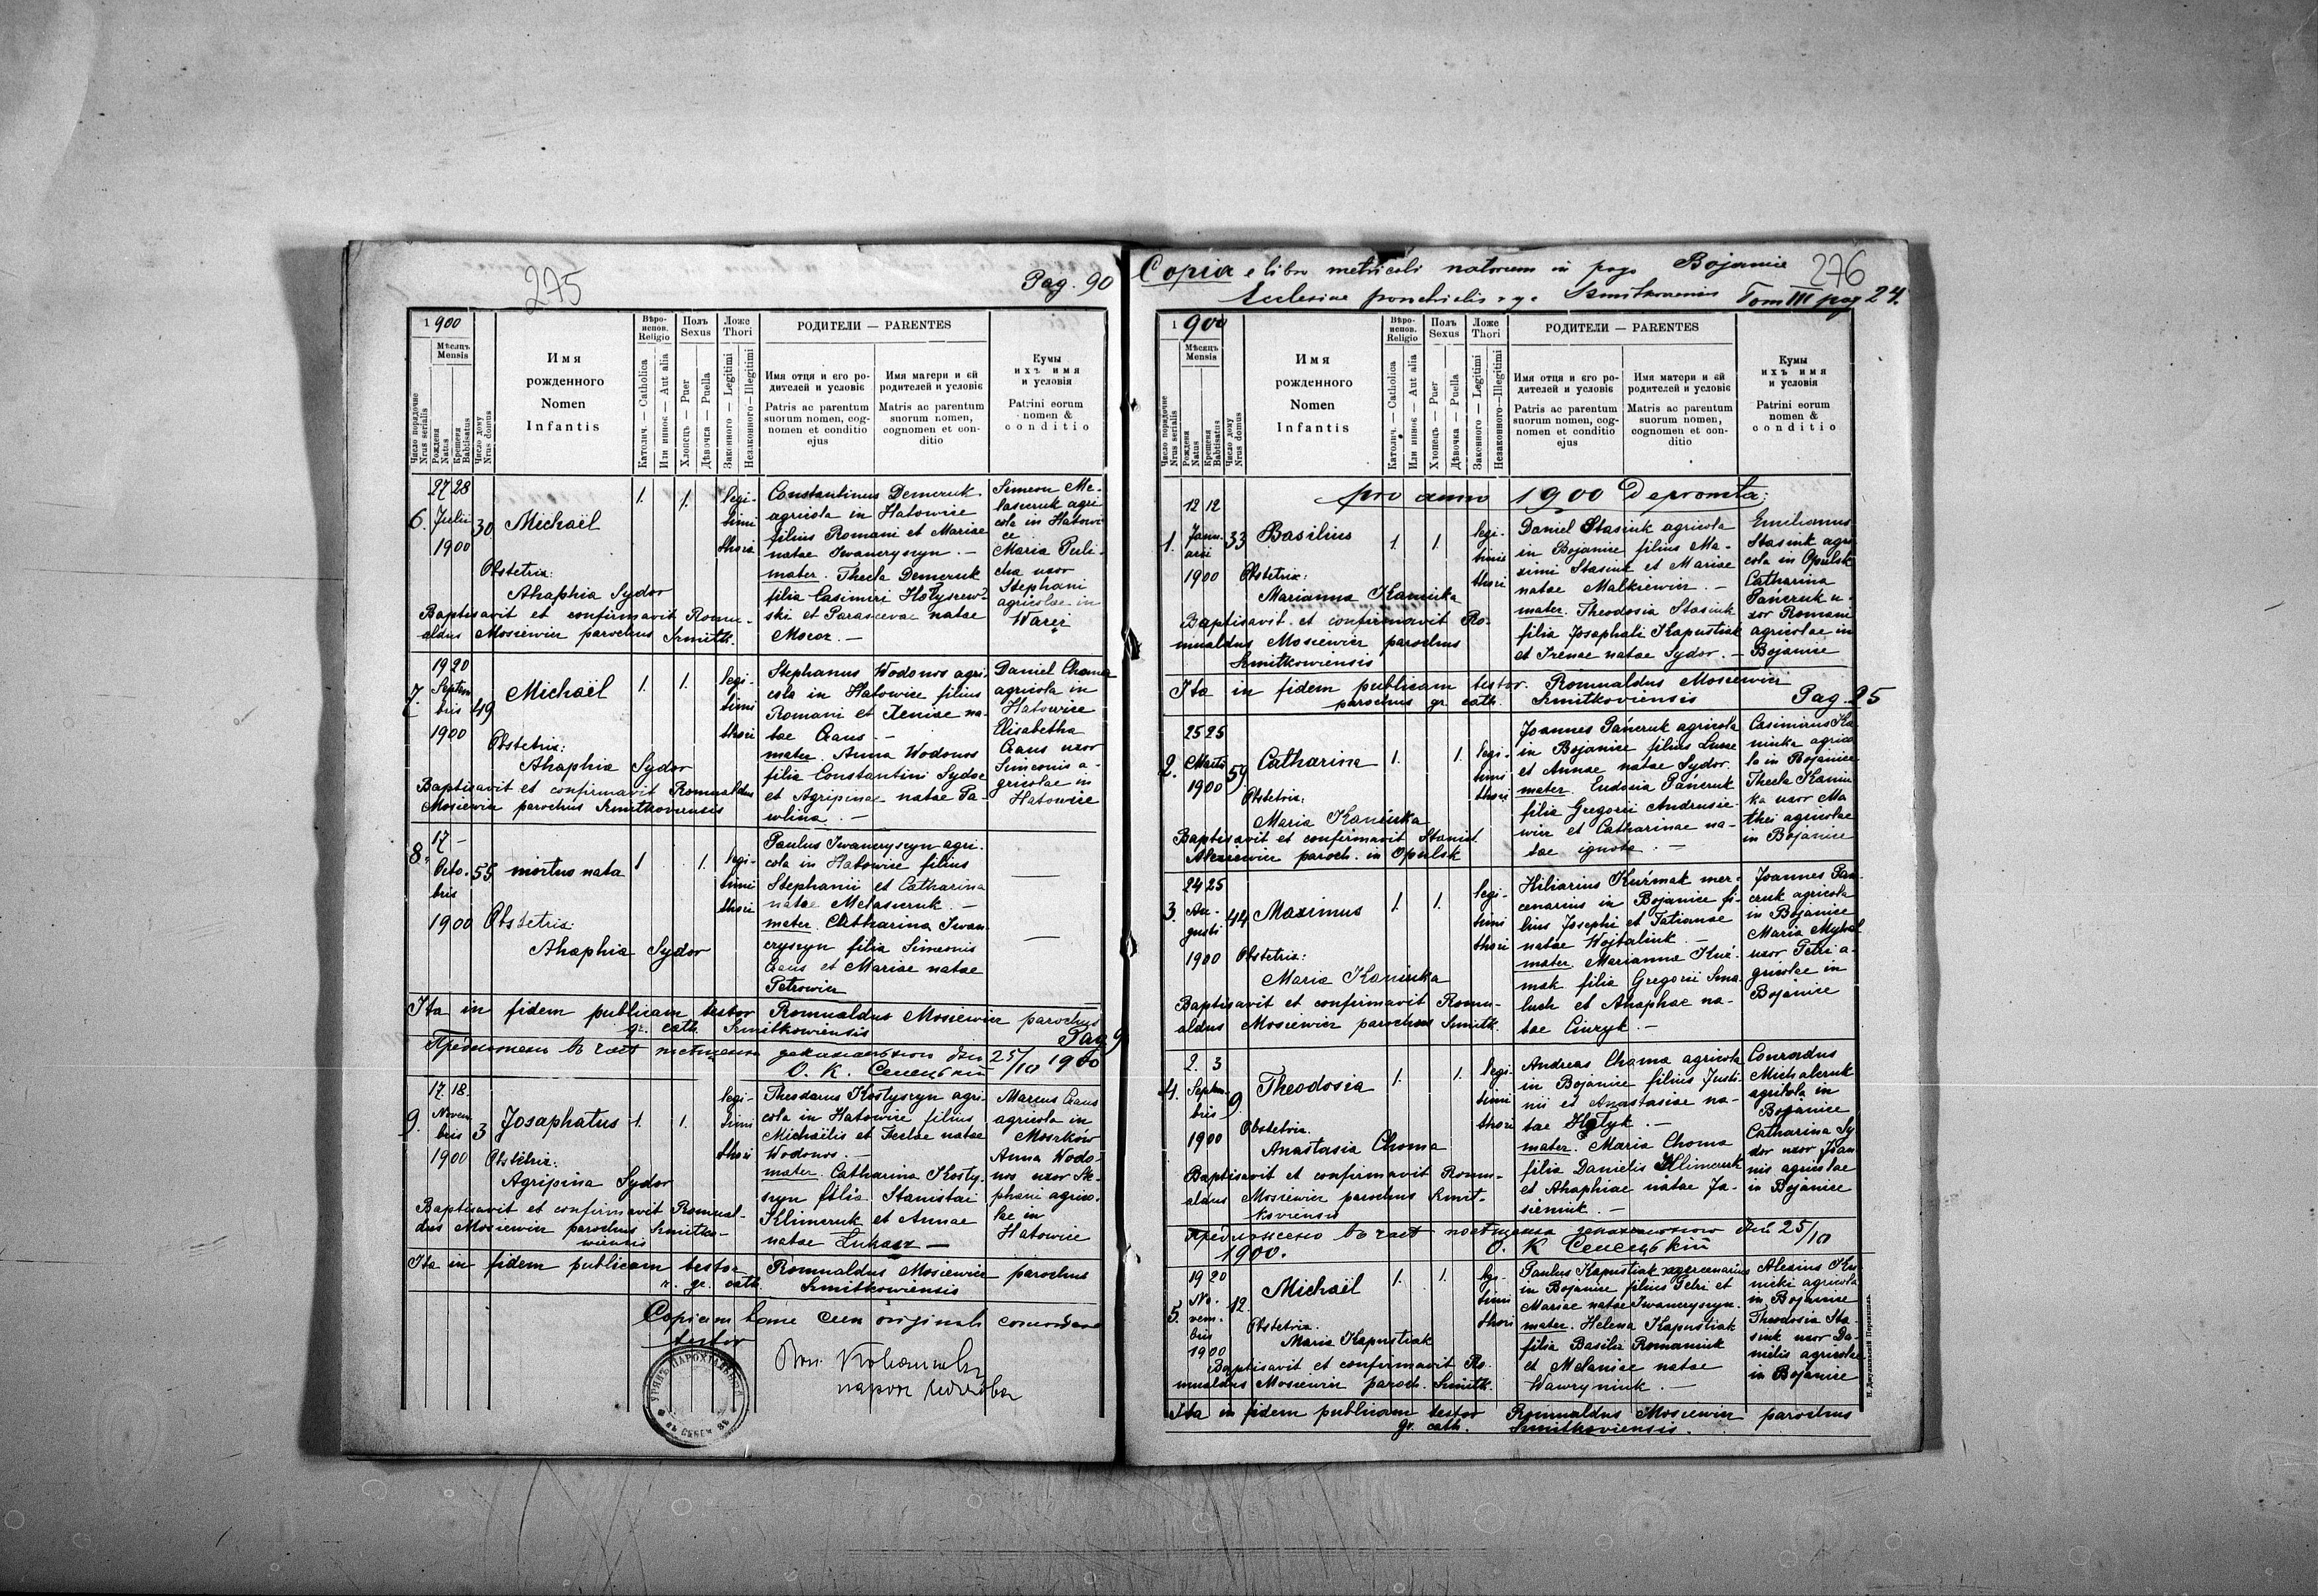 275
Pag. 90
1900
Мѣсяцъ
Mensis
Число порядочне
Nrus serialis
Рожденя
Natus
Крещеня
Babtisatus
Число дому
Nrus domus
Имя
рожденного
Nomen
Infantis
Вѣро-
испов.
Religio
Католич. — Catholica
Или инноє — Aut alia
Полъ
Sexus
Хлопець — Puer
Дѣвочка — Puella
Ложе
Thori
Законного — Legitimi
Незаконного — Illegitimi
РОДИТЕЛИ — PARENTES
Имя отця и єго ро-
дителей и условіє
Patris ac parentum
suorum nomen, cog-
nomen et conditio
ejus
Имя матери и єй
родителей и условіє
Matris ac parentum
suorum nomen,
cognomen et con-
ditio
Кумы
ихъ имя
и условія
Patrini eorum
nomen &
conditio
6.
27 28
Julii
1900
30
Michaël
1. 1.
legi-
timi
thori
Obstetrix:
Ahaphia Sydor
Baptisavit et confirmavit Romu-
aldus Mosiewicz parochus Szmitk.
Constantinus Demczuk
agricola in Hatowice
filius Romani et Mariae
natae Iwanczyszyn. —
mater. Thecla Demczuk
filia Casimiri Hołyszew-
ski et Parascevae natae
Mocoz. —
Simeon Me-
laszczuk agri
cola in Hatowi
ce
Maria Perli-
cha uxor
Stephani
agricolae in
Waręż
7.
19 20
Septem
bris
1900
49
Michaël
1. 1.
legi-
timi
thori
Obstetrix:
Ahaphia Sydor
Baptisavit et confirmavit Romualdus
Mosiewicz parochus Szmitkoviensis
Stephanus Wodonos agri-
cola in Hatowice filius
Romani et Xeniae na-
tae Czaus —
mater. Anna Wodonos
filia Constantini Sydor
et Agripinae natae Pa-
wlina. —
Daniel Choma
agricola in
Hatowice
Elisabetha
Czaus uxor
Simeonis a-
gricolae in
Hatowice
8.
17 —
Octo-
bris
1900
55
mortuo nata
1 1.
legi-
timi
thori
Obstetrix
Ahaphia Sydor
Paulus Iwanczyszyn agri-
cola in Hatowice filius
Stephanii et Catharina
natae Melaszczuk. —
mater. Catharina Iwan
czyszyn filia Simeonis
Czaus et Mariae natae
Petrowicz
Ita in fidem publicam testor Romualdus Mosiewicz parochus
gr. cath. Szmitkowiensis
Pag 9
25/10 1900
О. К. Сенецькій
9.
17. 18.
Novem
bris
1900
3
Josaphatus
1. 1.
legi-
timi
thori
Obstetrix:
Agripina Sydor
Baptisavit et confirmavit Romual-
dus Mosiewicz parochus Szmitko-
wiensis
Theodorus Kostyszyn agri-
cola in Hatowice filius
Michaëlis et Teclae natae
Wodonos. —
mater. Catharina Kosty-
szyn filia Stanislai
Klimczuk et Annae
natae Łukasz —
Marcus Czaus
agricola in
Moszków
Anna Wodo-
nos uxor Ste-
phani agrico-
lae in
Hatowice
Ita in fidem publicam testor Romualdus Mosiewicz parochus
r. gr. cath. Szmitkowiensis
Copiam hanc cum originali concordare
testor
УРЯДЪ ПАРОХІАЛЬНЫЙ
Copia e libro metricali natorum in pago Bojanice
276
Ecclesiae parochialis r. g. c. Szmitkoviensis Tom III pag 24.
1900
Мѣсяцъ
Mensis
Число порядочне
Nrus serialis
Рожденя
Natus
Крещеня
Babtisatus
Число дому
Nrus domus
Имя
рожденного
Nomen
Infantis
Вѣро-
испов.
Religio
Католич. — Catholica
Или инноє — Aut alia
Полъ
Sexus
Хлопець — Puer
Дѣвочка — Puella
Ложе
Thori
Законного — Legitimi
Незаконного — Illegitimi
РОДИТЕЛИ — PARENTES
Имя отця и єго ро-
дителей и условіє
Patris ac parentum
suorum nomen, cog-
nomen et conditio
ejus
Имя матери и єй
родителей и условіє
Matris ac parentum
suorum nomen,
cognomen et con-
ditio
Кумы
ихъ имя
и условія
Patrini eorum
nomen &
conditio
pro anno 1900 Depromta:
1.
12 12
Janu-
arii
1900
33
Basilius
1. 1.
legi-
timi
thori
Obstetrix:
Marianna Kaminka
Baptisavit et confirmavit Ro-
mualdus Mosiewicz parochus
Szmitkowiensis
Daniel Stasiuk agricola
in Bojanice filius Ma-
ximi Stasiuk et Mariae
natae Malkiewicz. —
mater. Theodosia Stasiuk
filia Josaphati Kapustiak
et Irenae natae Sydor. —
Emilianus
Stasiuk agri
cola in Opulsk
Catharina
Pańczuk u-
xor Romani
agricolae in
Bojanice
Ita in fidem publicam testor. Romualdus Mosiewicz
parochus gr. cath. Szmitkoviensis
Pag. 25
2.
25 25
Martii
1900
59
Catharina
1. 1.
legi-
timi
thori
Obstetrix:
Maria Kaminka
Baptisavit et confirmavit Stanisl.
Alexiewicz paroch. in Opulsk
Joannes Pańczuk agricola
in Bojanice filius Lucae
et Annae natae Sydor.
mater. Eudoxia Pańczuk
filia Gregorii Andrusie-
wicz et Catharinae na-
tae ignota. —
Casimirus Ka
minka agrico
la in Bojanice
Thecla Kamin
ka uxor Ma
thei agricolae
in Bojanice
3.
24 25
Au-
gusti
1900
44
Maximus
1. 1.
legi-
timi
thori
Obstetrix:
Maria Kaminka
Baptisavit et confirmavit Romu-
aldus Mosiewicz parochus Szmitk.
Hiliarius Kuźmak mer-
cenarius in Bojanice fi-
lius Josephi et Tatianae
natae Wojtaliuk. —
mater. Marianna Kuź-
mak filia Gregorii Sma-
luch et Ahaphae na-
tae Ciuryk. —
Joannes Pan
czuk agricola
in Bojanice
Maria Myhal
uxor Petri a-
gricolae in
Bojanice
4.
2. 3
Septem-
bris
1900
9.
Theodosia
1. 1.
legi-
timi
thori
Obstetrix.
Anastasia Choma
Baptisavit et confirmavit Romu-
aldus Mosiewicz parochus Szmit-
koviensis
Andreas Choma agricola
in Bojanice filius Justi-
nii et Anastasiae na-
tae Hołyk. —
mater. Maria Choma
filia Danielis Klimczuk
et Ahaphiae natae Ja-
sieniuk. —
Conradus
Michalczuk
agricola in
Bojanice
Catharina Sy
dor uxor Joan
nis agricolae
in Bojanice
25/10
1900.
О. К Сенецькій
5.
19 20
No-
vem-
bris
1900
12.
Michaël
1. 1.
legi-
timi
thori
Obstetrix.
Maria Kapustiak
Baptisavit et confirmavit Ro-
mualdus Mosiewicz paroch. Szmitk.
Paulus Kapustiak mercenarius
in Bojanice filius Petri et
Mariae natae Iwanczyszyn.
mater. Helena Kapustiak
filia Basilii Romaniuk
et Melaniae natae
Wawryniuk. —
Alexius Ku
nicki agricola
in Bojanice
Theodosia Sta-
siuk uxor Da-
nielis agricolae
in Bojanice
Ita in fidem publicam testor Romualdus Mosiewicz parochus
gr. cath. Szmitkoviensis.